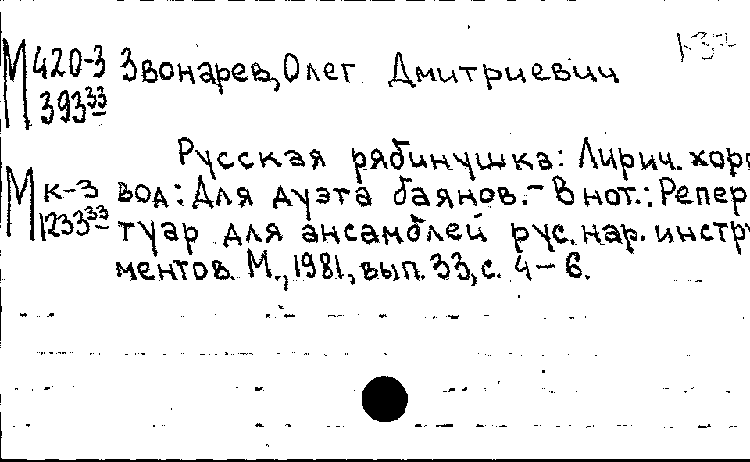 М 420-3 Звонарев, Олег Дмитриевич
393 33
Русская рябинушка: Лирич. хоро
М к-3 вод: Для дуэта баянов. - В нот.: Репер
1233 33 туар для ансамблей рус. нар. инстру
ментов. М., 1981, вып. 33, с. 4-6.